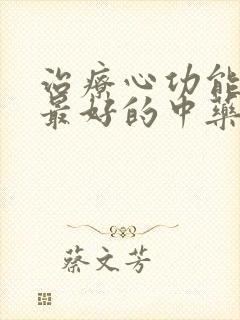 治療心功能
最好的中藥
蔡文芳